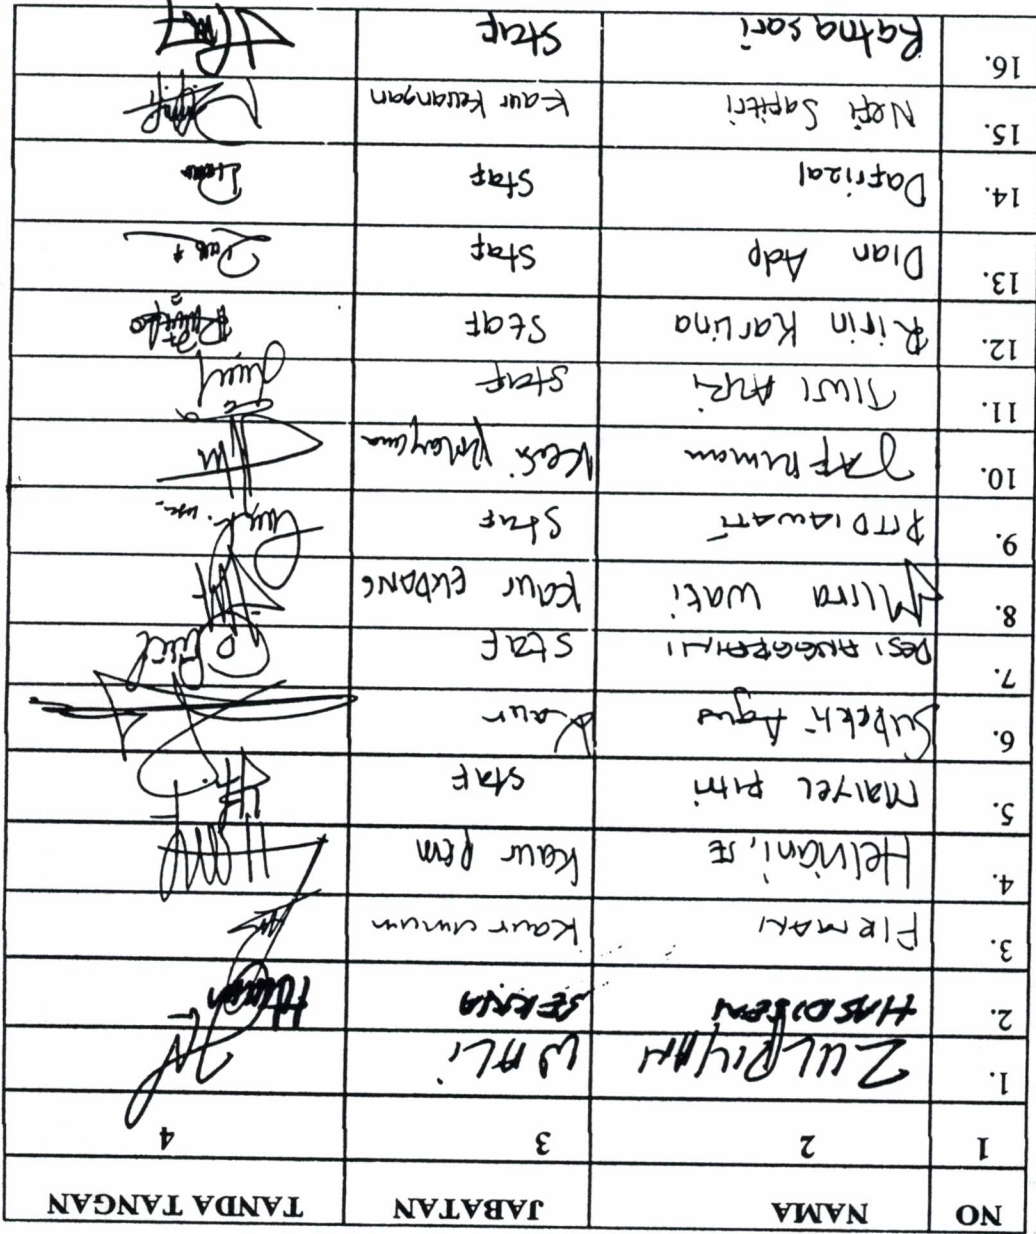 NO NAMA JABATAN TANDA TANGAN
1 2 3 4
1. ZULPILMAN WALI
2. HASDISEN SEKNA
3. FIRMAN Kaur umum
4. Helviani, SE Kaur Pem
5. Maiyel Fitri Staf
6. Subekti Agus Kaur
7. DESI ANGGRAINI Staf
8. Mirna wati Kaur EKBANG
9. RITDIAWATI Staf
10. JAFRIMAN Kasi
11. TIWI Staf
12. Ririn Karlina Staf
13. Dian Adp Staf
14. Dafrizal Staf
15. Nefi Safitri Kaur Keuangan
16. Ratna sari Staf